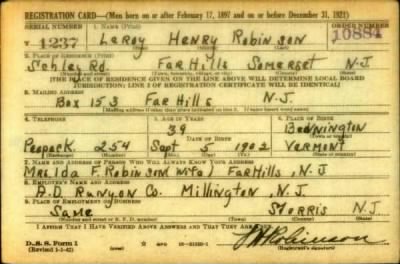 REGISTRATION CARD—(Men born on or after February 17, 1897 and on or before December 31, 1921)
SERIAL NUMBER 1. NAME (Print) ORDER NUMBER
1237 LeRoy Henry Robinson 10884
(First) (Middle) (Last)
2. PLACE OF RESIDENCE (Print)
Schley Rd. Far Hills Somerset N.J.
(Number and street) (Town, township, village, or city) (County) (State)
[THE PLACE OF RESIDENCE GIVEN ON THE LINE ABOVE WILL DETERMINE LOCAL BOARD
JURISDICTION; LINE 2 OF REGISTRATION CERTIFICATE WILL BE IDENTICAL]
3. MAILING ADDRESS
Box 153 Far Hills N.J.
[Mailing address if other than place indicated on line 2. If same insert word same]
4. TELEPHONE 5. AGE IN YEARS 6. PLACE OF BIRTH
39 Bennington
DATE OF BIRTH (Town or county)
Peapack 254 Sept 5 1902 Vermont
(Exchange) (Number) (Mo.) (Day) (Yr.) (State or country)
7. NAME AND ADDRESS OF PERSON WHO WILL ALWAYS KNOW YOUR ADDRESS
Mrs. Ida F. Robinson wife) Far Hills, N.J.
8. EMPLOYER'S NAME AND ADDRESS
A.D. Runyon Co. Millington, N.J.
9. PLACE OF EMPLOYMENT OR BUSINESS
Same Morris N.J.
(Number and street or R. F. D. number) (Town) (County) (State)
I AFFIRM THAT I HAVE VERIFIED ABOVE ANSWERS AND THAT THEY ARE TRUE.
D. S. S. Form 1
(Revised 1-1-42) GPO Robinson
(Registrant's signature)